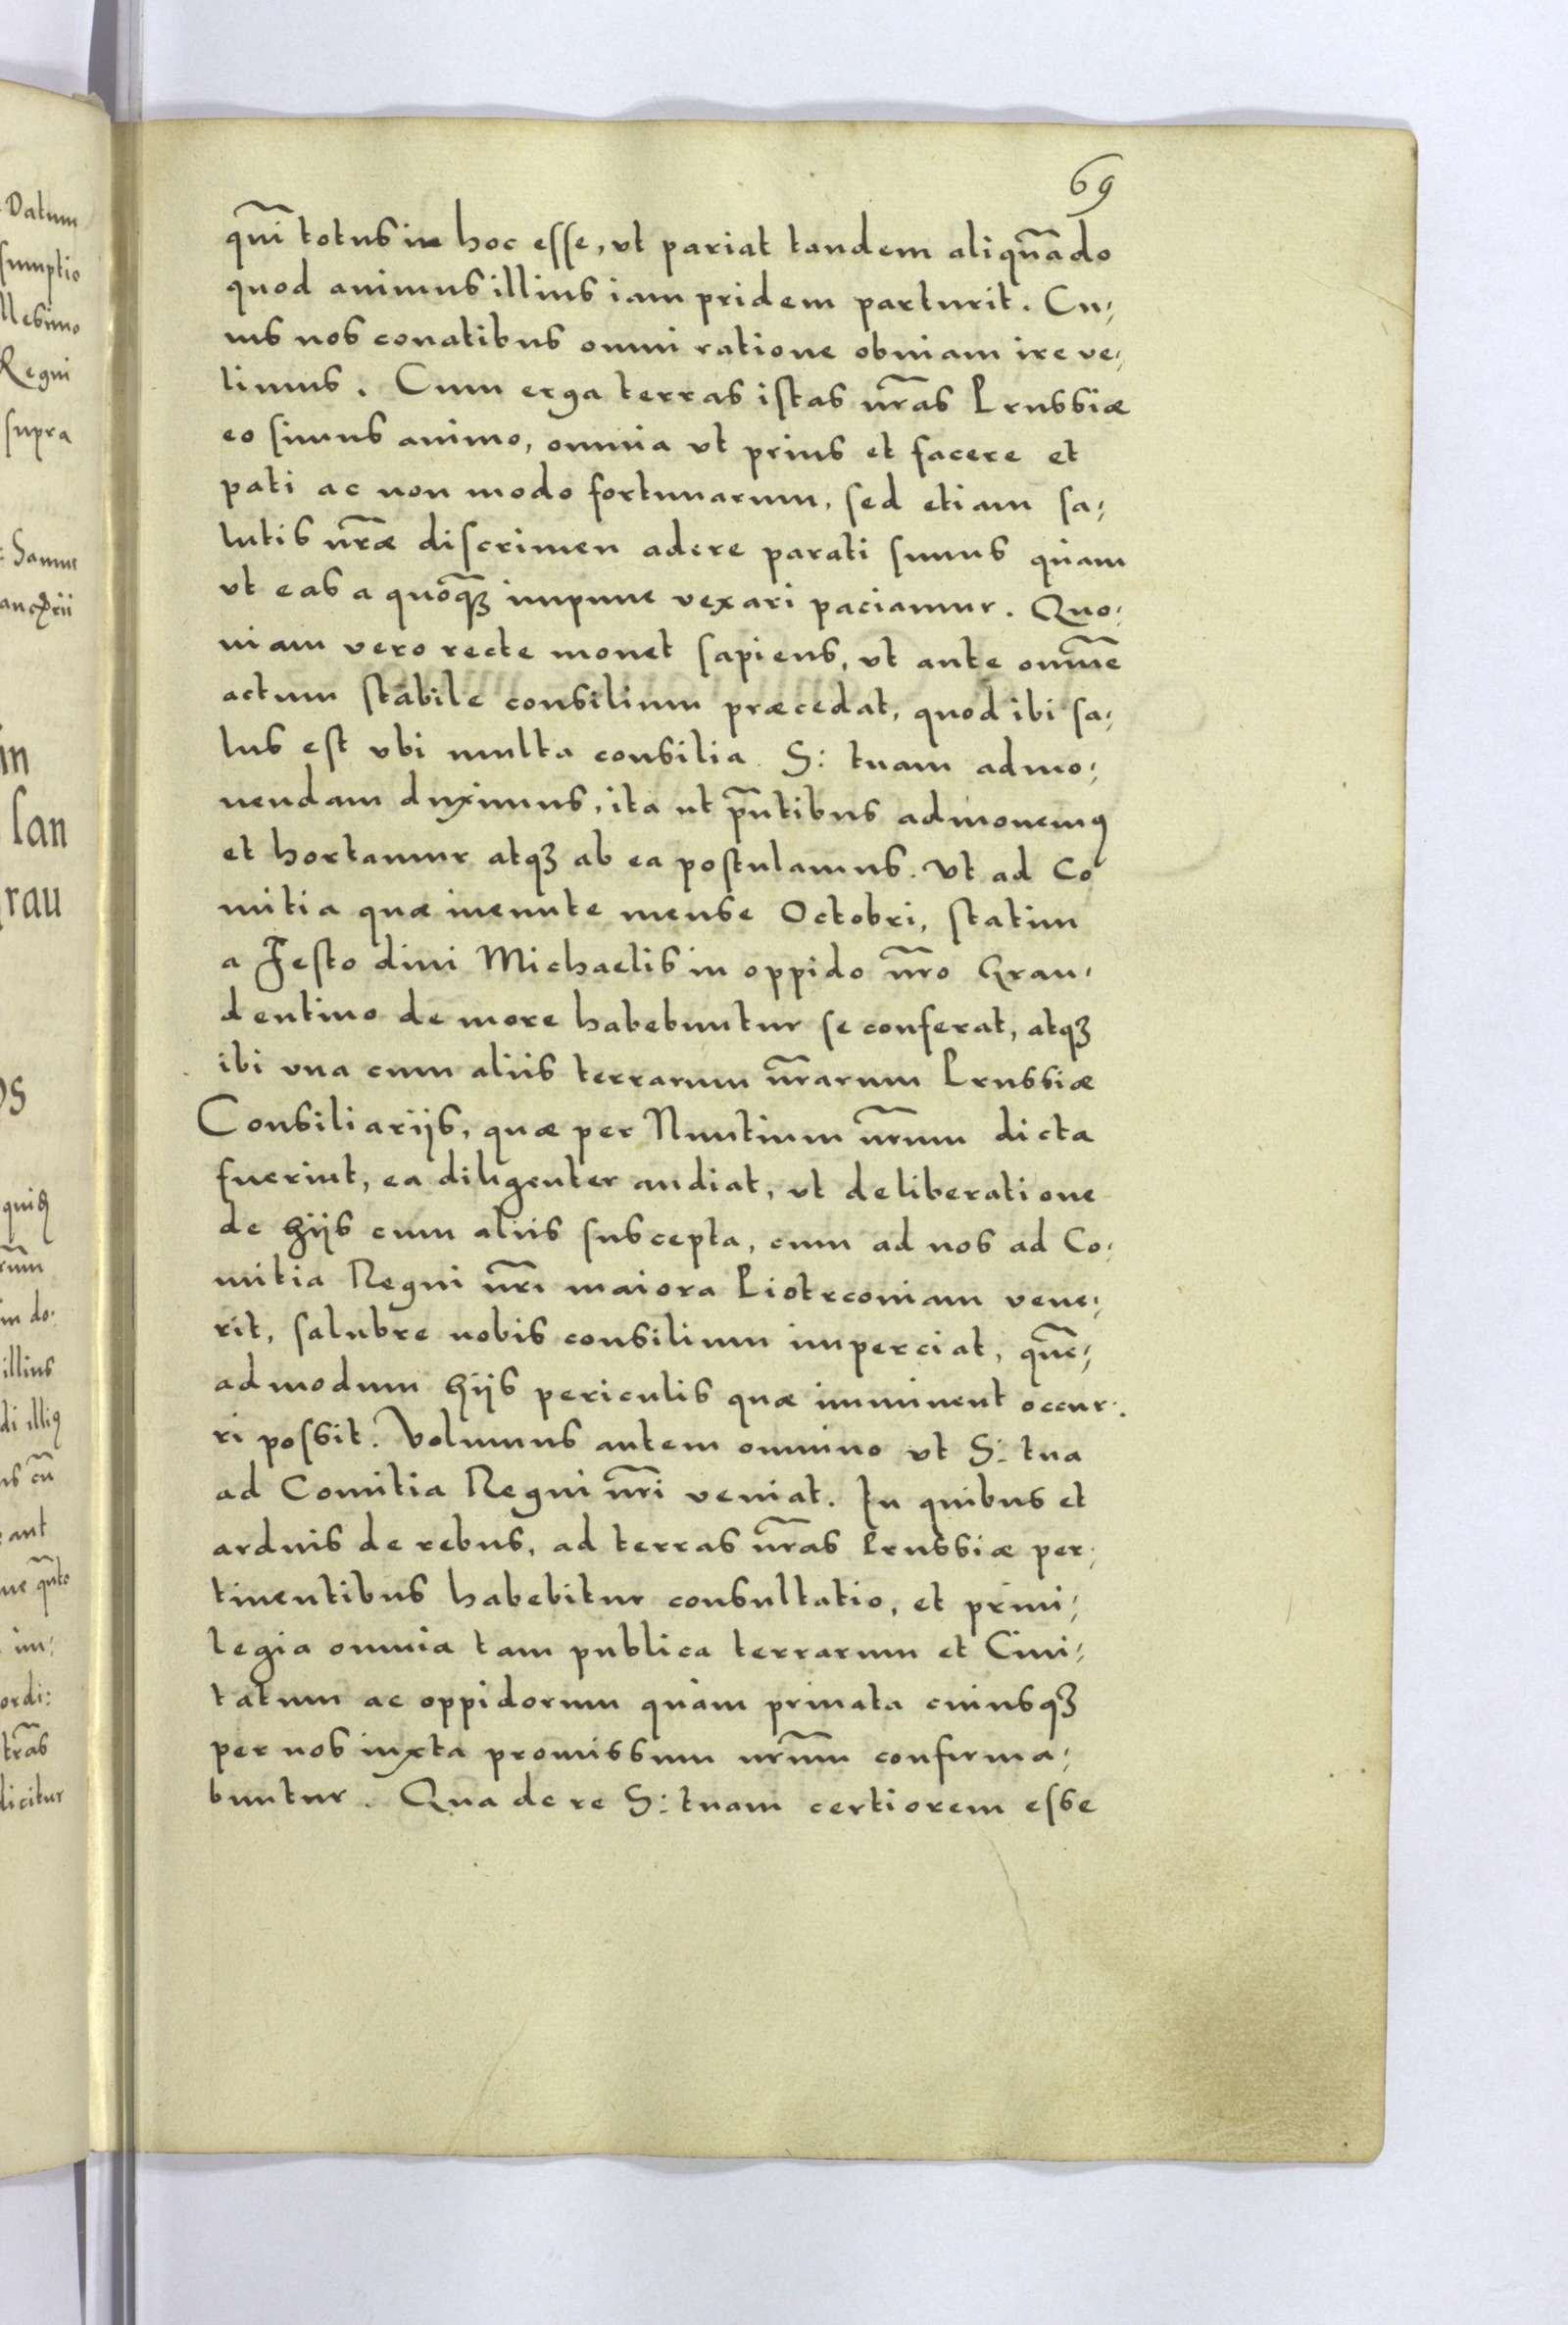 69
qm̄ totus in hoc esse, vt pariat tandem aliqn̄ado
quod animus illius iam pridem parturit. Cu,
ius nos conatibus omni ratione obuiam ire ve,
limus. Cum erga terras istas nr̄as Prussiæ
eo simus animo, omnia vt prius et facere et
pati ac non modo fortunarum, sed etiam sa,
lutis nr̄æ discrimen adere parati simus quam
vt eas a quoq̄ȝ impune vexari paciamur. Quo,
niam vero recte monet sapiens, vt ante omn̄e
actum stabile consilium præcedat, quod ibi sa,
lus est vbi multa consilia S: tuam admo,
nendam duximus, ita ut pn̄tibus admonemꝰ
et hortamur atqȝ ab ea postulamus. Vt ad Co
mitia quæ ineunte mense Octobri, statim
a Festo diui Michaelis in oppido nr̄o Grau,
dentino de more habebuntur se conferat, atqȝ
ibi vna cum aliis terrarum nr̄arum Prussiæ
Consiliarijs, quæ per Nuntium nr̄um dicta
fuerint, ea diligenter audiat, vt deliberatione
de hijs cum aliis suscepta, cum ad nos ad Co,
mitia Regni nr̄i maiora Piotrcouiam vene,
rit, salubre nobis consilium imperciat, que̅,
admodum hijs periculis quæ imminent occur,
ri possit. Volumus autem omnino vt S: tua
ad Comitia Regni nr̄i veniat. In quibus et
arduis de rebus, ad terras nr̄as Prussiæ per,
tinentibus habebitur consultatio, et priui,
legia omnia tam publica terrarum et Ciui,
tatum ac oppidorum quam priuata cuiusqȝ
per nos iuxta promissum nr̄um confirma,
buntur. Qua de re S: tuam certiorem esse
Datum
sumptio
llesimo
Regni
supra
in
lan
rau
os
illius
aut
im,
ordi:
licitur